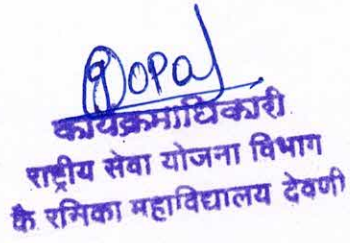 Gopal
कार्यक्रमाधिकारी
राष्ट्रीय सेवा योजना विभाग
कै रमिका महाविद्यालय देवणी